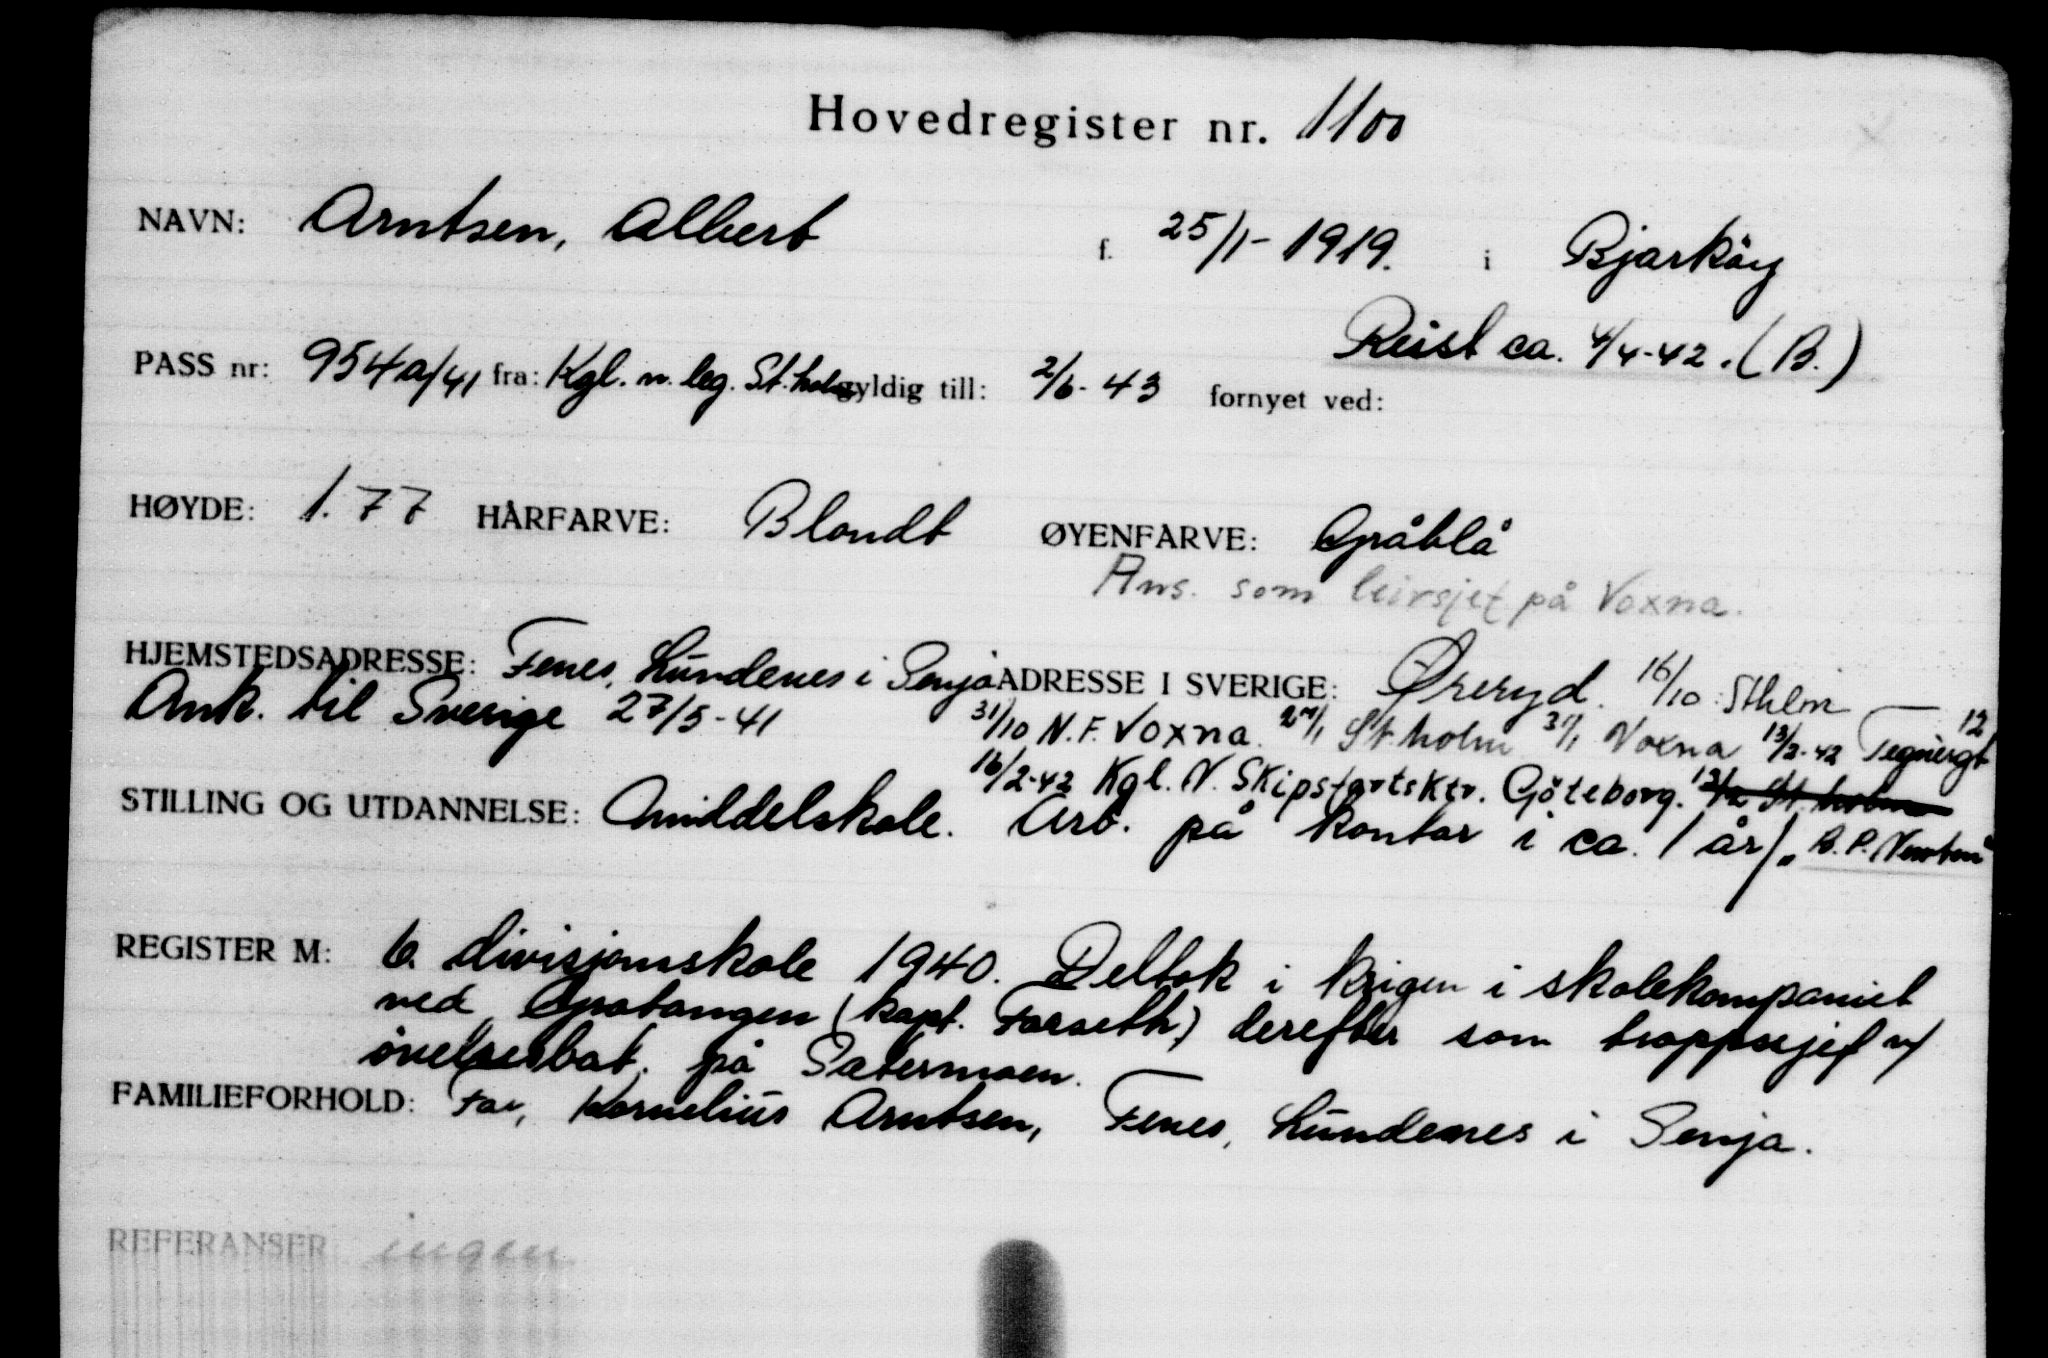 Hovedregister nr. 1100
NAVN: Arntsen, Albert f. 25/1-1919. i Bjarköy
Reist ca. 4/4-42. (B.)
PASS nr: 954a/41 fra: Kgl. n. leg. St.holm gyldig till: 2/6-43 fornyet ved:
HØYDE: 1.77 HÅRFARVE: Blondt ØYENFARVE: Gråblå
Ans. som leirsjef på Voxna.
HJEMSTEDSADRESSE: Fenes, Lundenes i Senja ADRESSE I SVERIGE: Øreryd. 16/10 Sthlm
Ank. til Sverige 27/5-41 31/10 N.F. Voxna. St.holm 31/1 Voxna 13/2-42 Tegnérgt 12
16/2-42 Kgl. N. Skipsfartsktr. Göteborg. St.holm
STILLING OG UTDANNELSE: Middelskole. Arb. på kontor i ca. 1 år/. B.P. Newton"
REGISTER M: 6. divisjonskole 1940. Deltok i krigen i skolekompaniet
ved Gratangen (kapt. Forseth) derefter som troppssjef v/
övelsesbat. på Setermoen.
FAMILIEFORHOLD: Far, Kornelius Arntsen, Fenes, Lundenes i Senja.
REFERANSER: ingen